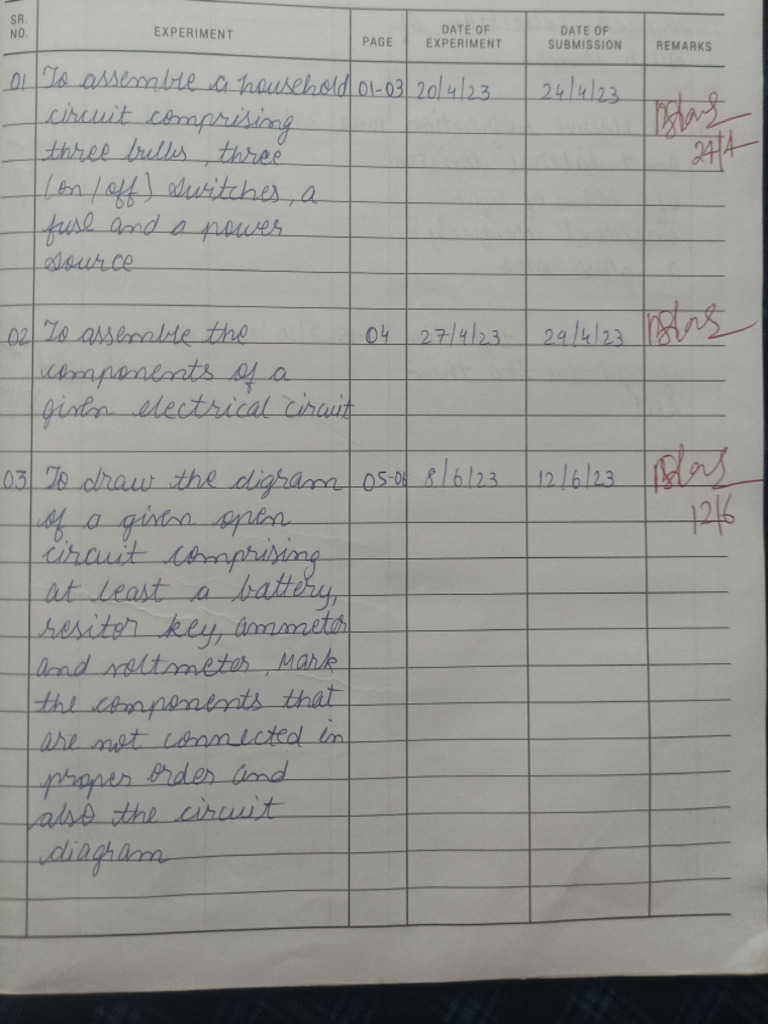 SR. NO. EXPERIMENT PAGE DATE OF EXPERIMENT DATE OF SUBMISSION REMARKS
01 To assemble a household 01-03 20/4/23 24/4/23
circuit comprising
three bulbs, three 24/4
(on/off) switches, a
fuse and a power
source
02 To assemble the 04 27/4/23 29/4/23
components of a
given electrical circuit
03 To draw the digram 05-06 8/6/23 12/6/23
of a given open 12/6
circuit comprising
at least a battery,
resitor key, ammeter
and voltmeter. Mark
the components that
are not connected in
proper order and
also the circuit
diagram